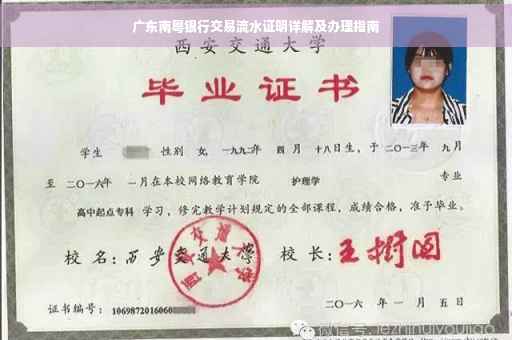 广东南粤银行交易流水证明详解及办理指南
西安交通大学
毕业证书
学生 性别 女, 一九九二年 四 月 十八日生, 于 二〇一三年 九月
至 二〇一六年 一月在本校网络教育学院 护理学 专业
高中起点专科 学习, 修完教学计划规定的全部课程, 成绩合格, 准予毕业。
校 名: 西安交通大学 校 长: 王树国
西安交通大学
证书编号: 1069872016060
二〇一六 年 一 月 五 日
微信号: jezhihuiyoujiao